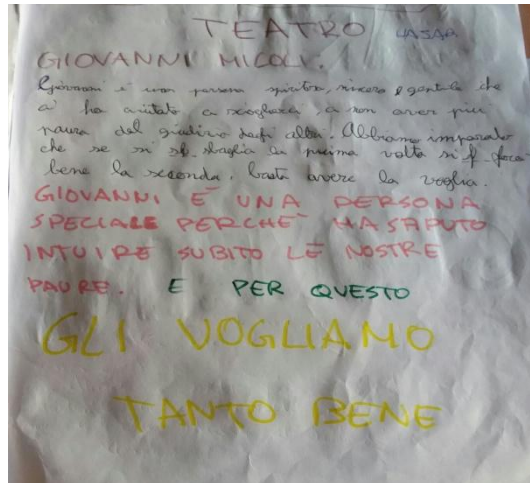 TEATRO
GIOVANNI MICOLI.
Giovanni è una persona spiritosa, sincera e gentile che
ci ha aiutato a sciogliersi, a non aver più
paura del giudizio degli altri. Abbiamo imparato
che se si sbaglia la prima volta si farà
bene la seconda, basta avere la voglia.
GIOVANNI E' UNA PERSONA
SPECIALE PERCHE' HA SAPUTO
INTUIRE SUBITO LE NOSTRE
PAURE. E PER QUESTO
GLI VOGLIAMO
TANTO BENE